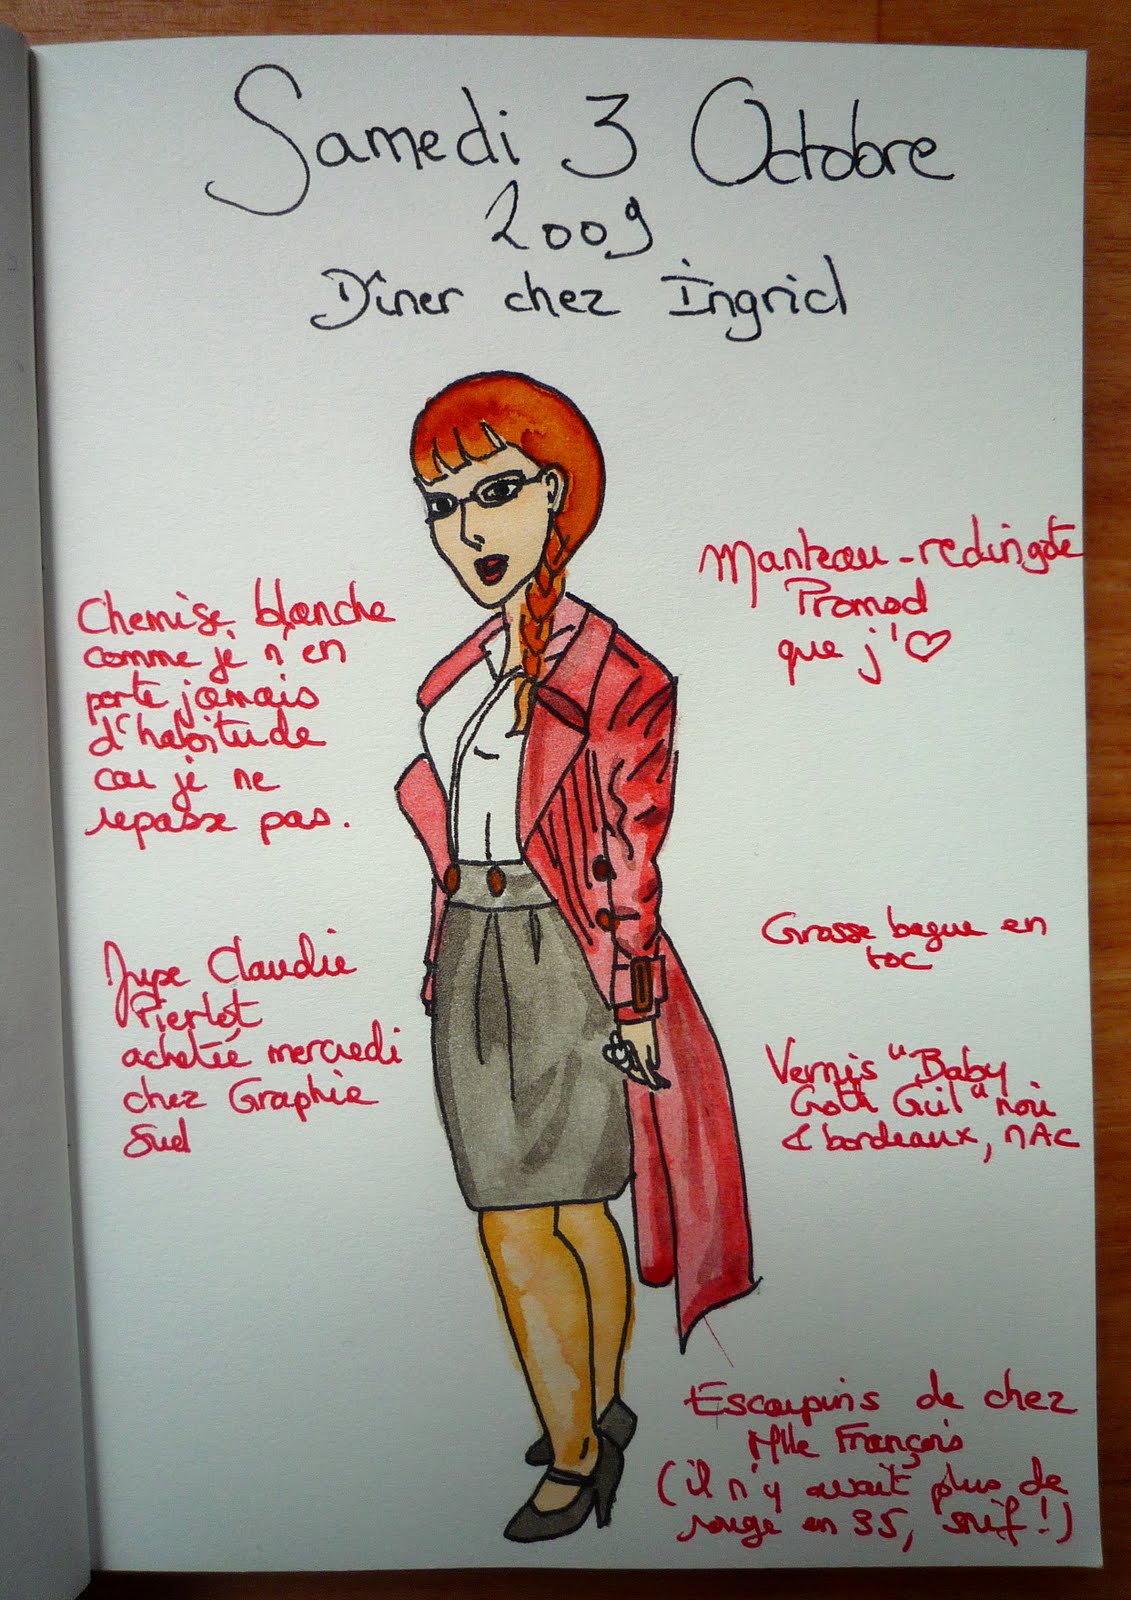 Samedi 3 Octobre
2009
Dîner chez Ingrid
Chemise blanche
comme je n'en
porte jamais
d'habitude
car je ne
repasse pas.
Manteau-redingote
Promod
que j'♡
Jupe Claudie
Pierlot
achetée mercredi
chez Graphie
Sud
Grosse bague en
toc
Vernis "Baby
Goth Girl" noir
& bordeaux, MAC
Escarpins de chez
Mlle François
(il n'y avait plus de
rouge en 35, snif !)